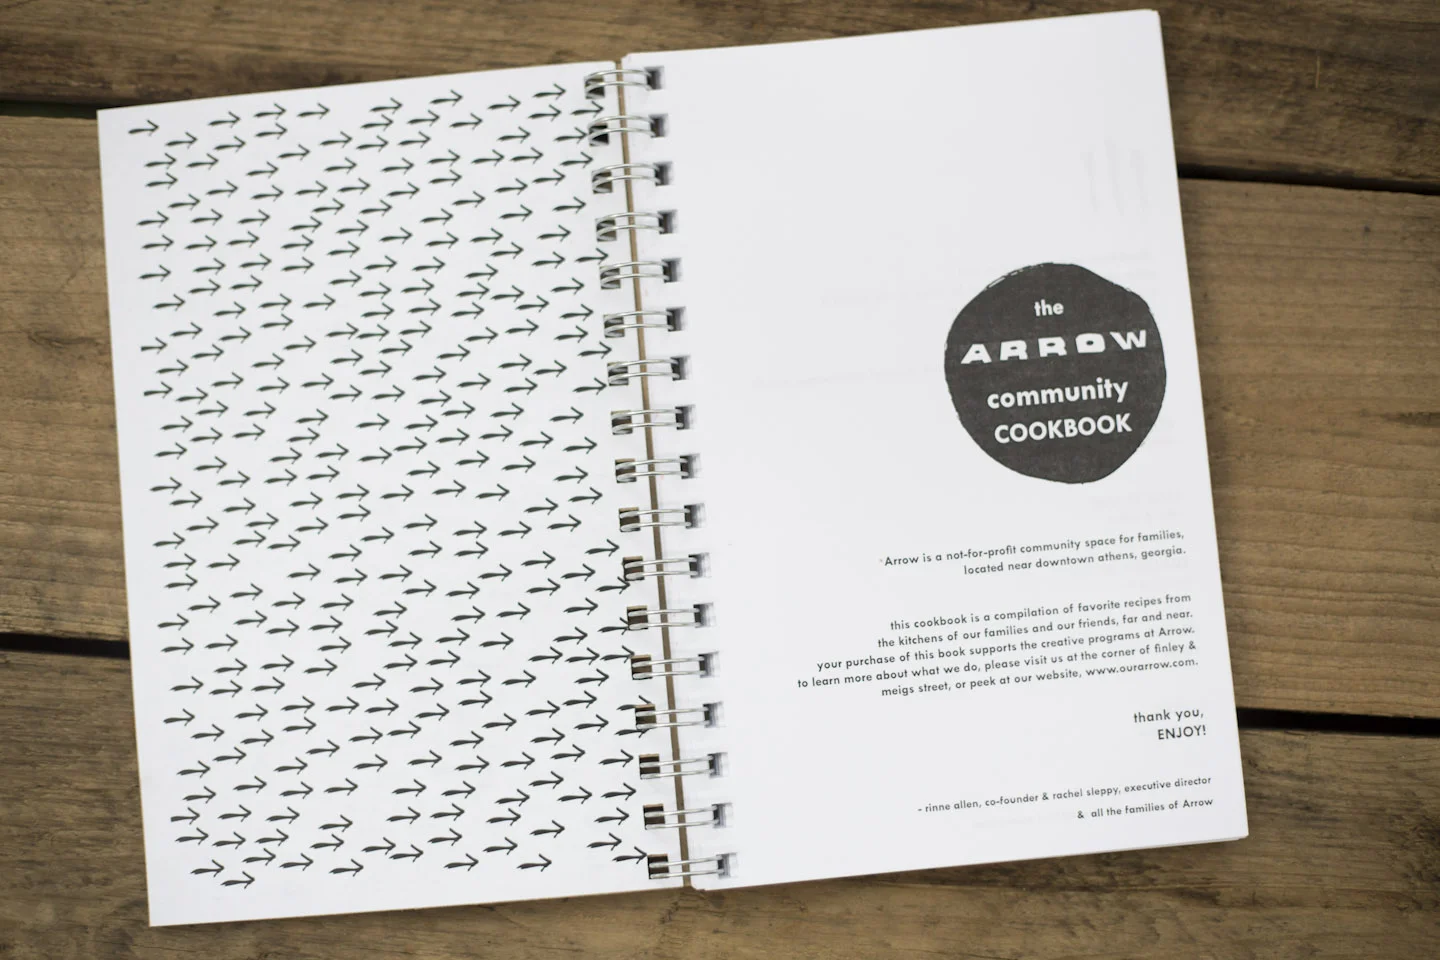 the
ARROW
community
COOKBOOK
*Arrow is a not-for-profit community space for families,
located near downtown athens, georgia.
this cookbook is a compilation of favorite recipes from
the kitchens of our families and our friends, far and near.
your purchase of this book supports the creative programs at Arrow.
to learn more about what we do, please visit us at the corner of finley &
meigs street, or peek at our website, www.ourarrow.com.
thank you,
ENJOY!
- rinne allen, co-founder & rachel sleppy, executive director
& all the families of Arrow